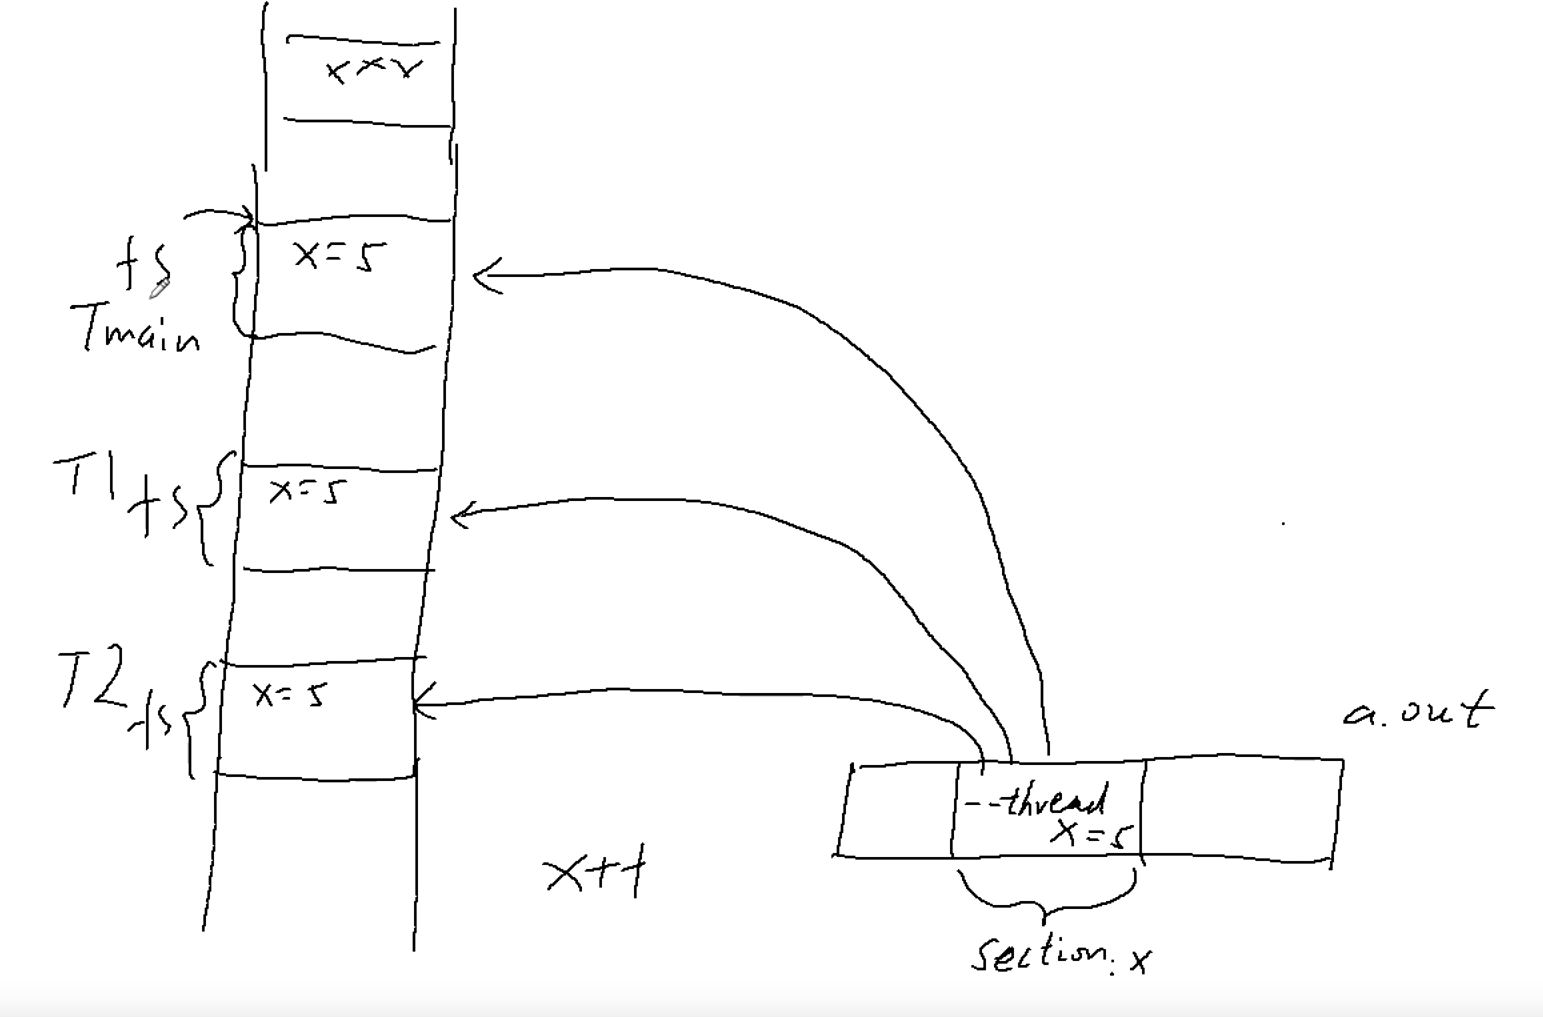 x x x
x=5
fs
Tmain
T1 fs
x=5
T2 fs
x=5
a.out
--thread
x=5
x++
section: x